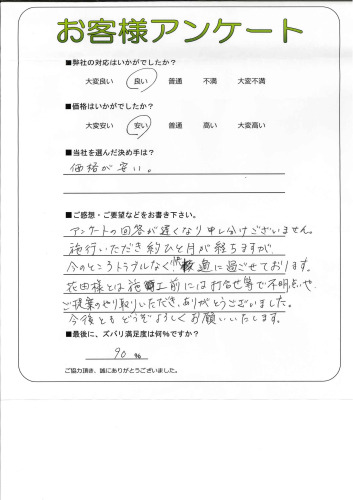 お客様アンケート
■弊社の対応はいかがでしたか？
大変良い 良い 普通 不満 大変不満
■価格はいかがでしたか？
大変安い 安い 普通 高い 大変高い
■当社を選んだ決め手は？
価格が安い。
■ご感想・ご要望などをお書き下さい。
アンケートの回答が遅くなり申し分けございません。
施行いただき約ひと月が経ちますが
今のところトラブルなく快適に過ごせております。
花田様とは施工前には打合せ等で不明点や
ご提案のやり取りいただき、ありがとうございました。
今後ともどうぞよろしくお願いいたします。
■最後に、ズバリ満足度は何%ですか？
90 %
ご協力頂き、誠にありがとうございました。